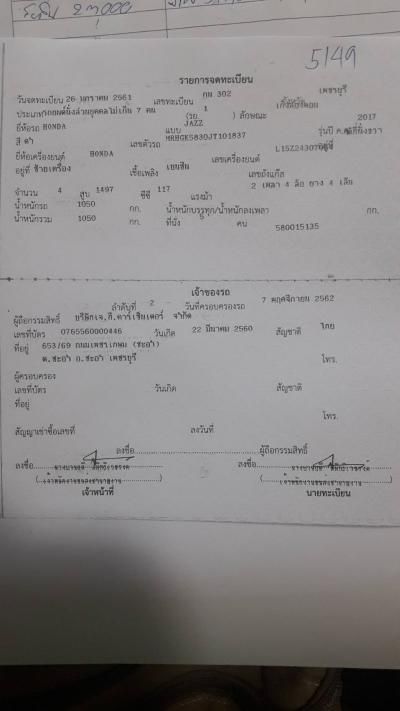 5149
รายการจดทะเบียน
วันจดทะเบียน 26 มกราคม 2561 เลขทะเบียน กษ 302 เพชรบุรี
ประเภท รถยนต์นั่งส่วนบุคคลไม่เกิน 7 คน (รย. 1 ) ลักษณะ
ยี่ห้อรถ HONDA แบบ JAZZ รุ่นปี ค.ศ. 2017
สี ดำ เลขตัวรถ MRHGK5830JT101837 อยู่ที่
ยี่ห้อเครื่องยนต์ HONDA เลขเครื่องยนต์
อยู่ที่ ซ้ายเครื่อง เชื้อเพลิง เบนซิน เลขถังแก๊ส
จำนวน 4 สูบ 1497 ซีซี 117 แรงม้า 2 เพลา 4 ล้อ ยาง 4 เส้น
น้ำหนักรถ 1050 กก. น้ำหนักบรรทุก/น้ำหนักลงเพลา กก.
น้ำหนักรวม 1050 กก. ที่นั่ง 5 คน 580015135
เจ้าของรถ
ลำดับที่ 2 วันที่ครอบครองรถ 7 พฤศจิกายน 2562
ผู้ถือกรรมสิทธิ์ บริษัทเจ.ที.คาร์เซ็นเตอร์ จำกัด
เลขที่บัตร 0765560000446 วันเกิด 22 มีนาคม 2560 สัญชาติ ไทย
ที่อยู่ 653/69 ถนนเพชรเกษม (ชะอำ)
ต.ชะอำ อ.ชะอำ เพชรบุรี โทร.
ผู้ครอบครอง
เลขที่บัตร วันเกิด สัญชาติ
ที่อยู่
โทร.
สัญญาเช่าซื้อเลขที่ ลงวันที่
ลงชื่อ ผู้ถือกรรมสิทธิ์
ลงชื่อ ลงชื่อ
(เจ้าพนักงานขนส่งชำนาญงาน) (เจ้าพนักงานขนส่งชำนาญงาน)
เจ้าหน้าที่ นายทะเบียน